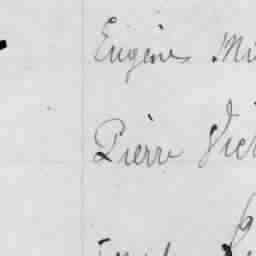 Eugène Mi
Pierre Vic